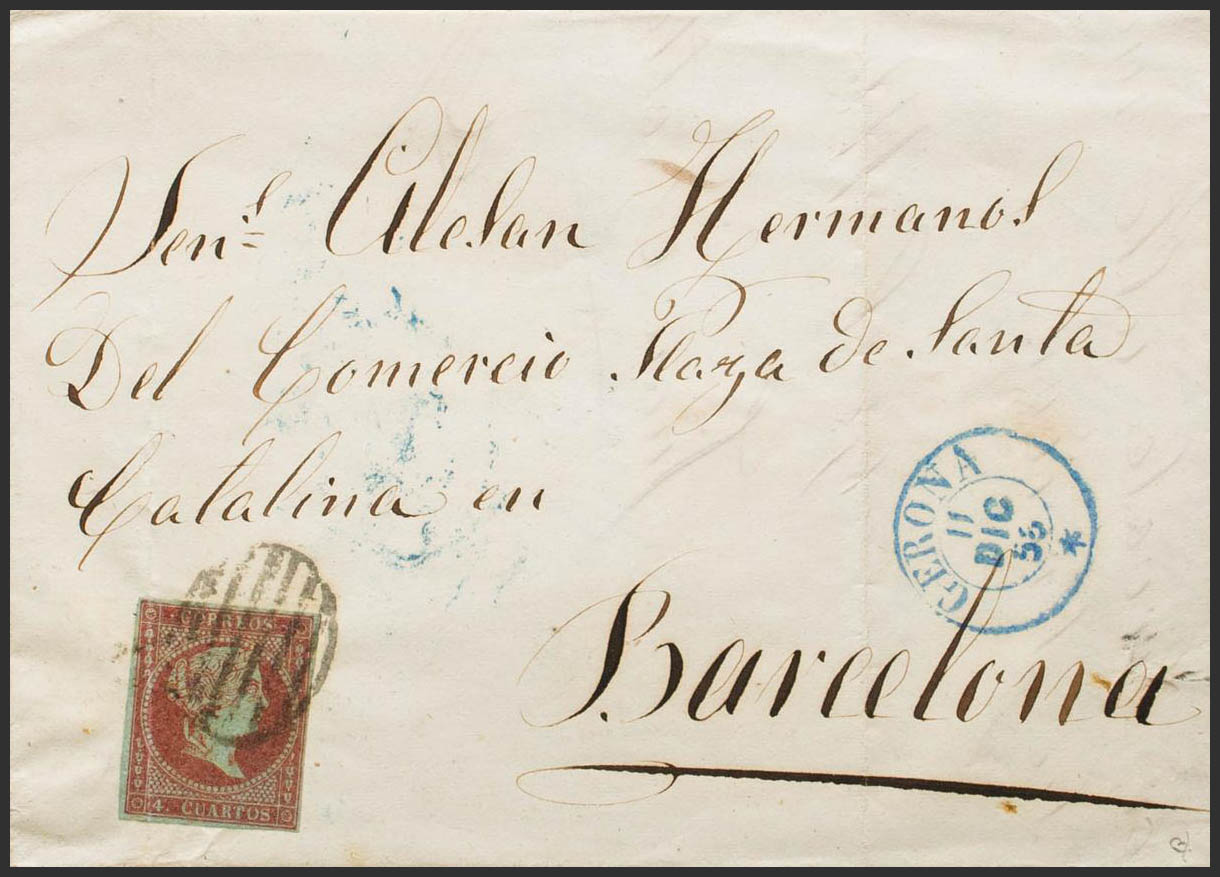 Sen.s Alesan Hermanos
Del Comercio Plaza de Santa
Catalina en
Barcelona
GERONA
11
DIC
56
CORREOS
4. CUARTOS